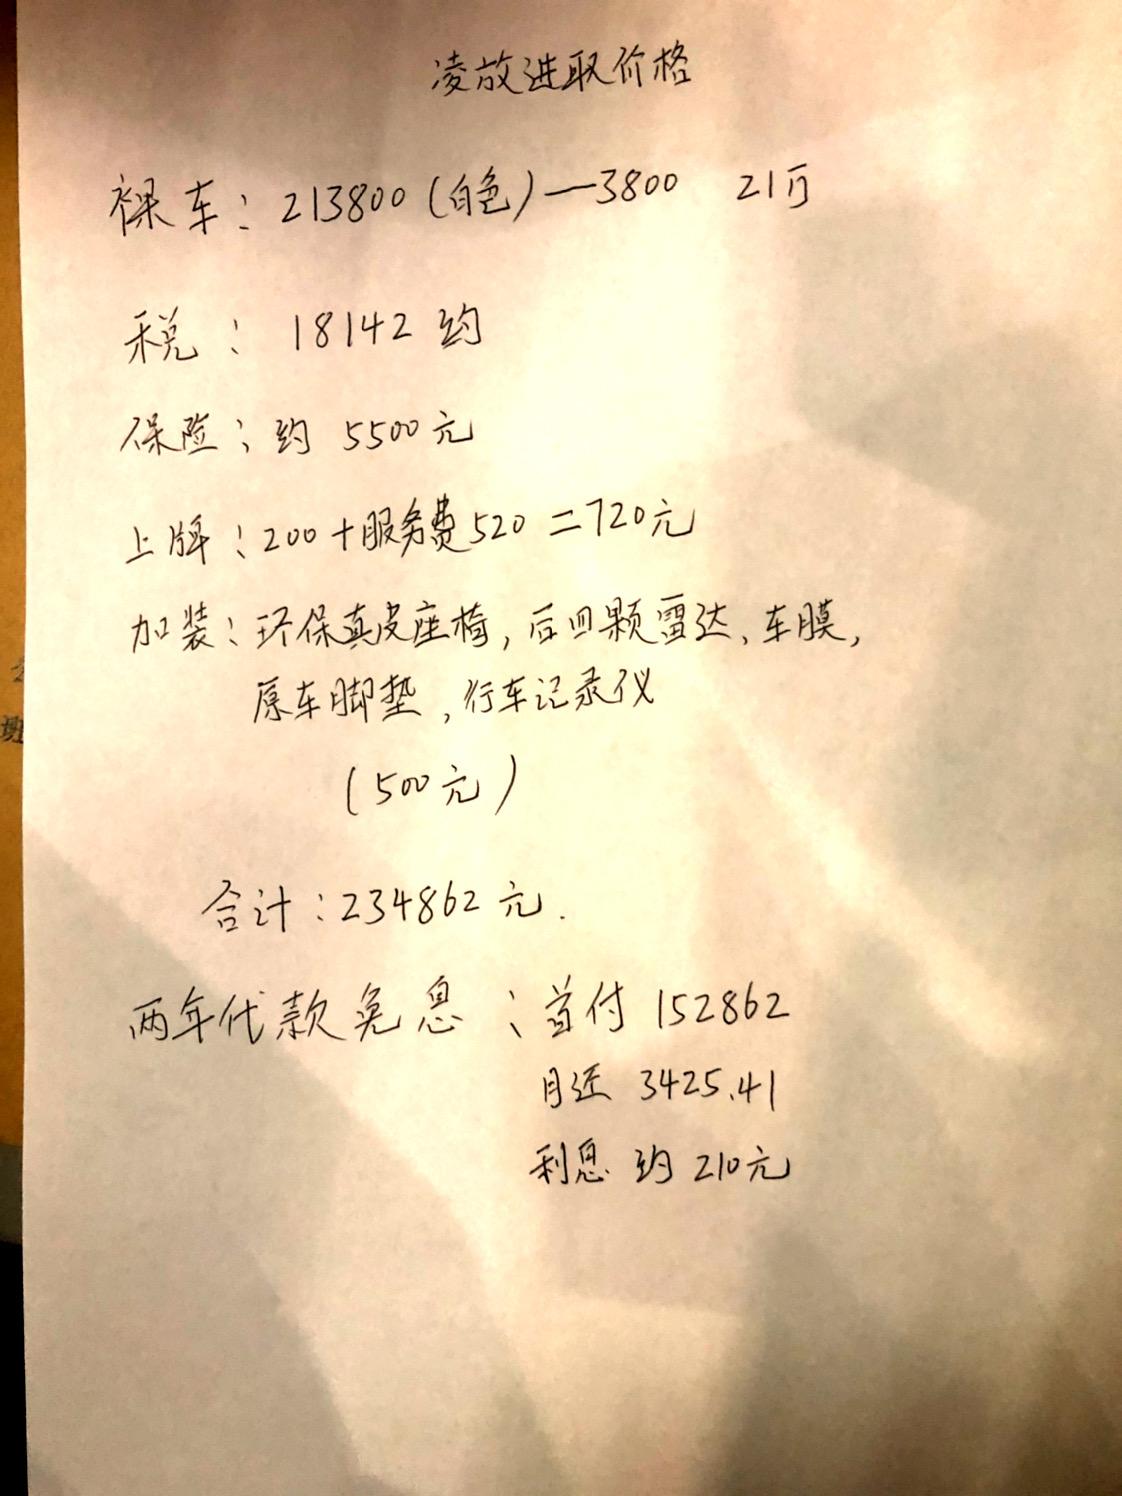 凌放进取价格
裸车：213800（白色）—3800 21万
税：18142约
保险：约 5500元
上牌：200+服务费520=720元
加装：环保真皮座椅，后四颗雷达、车膜，
原车脚垫，行车记录仪
（500元）
合计：234862元.
两年代款免息：首付 152862
月还 3425.41
利息 约 210元
班